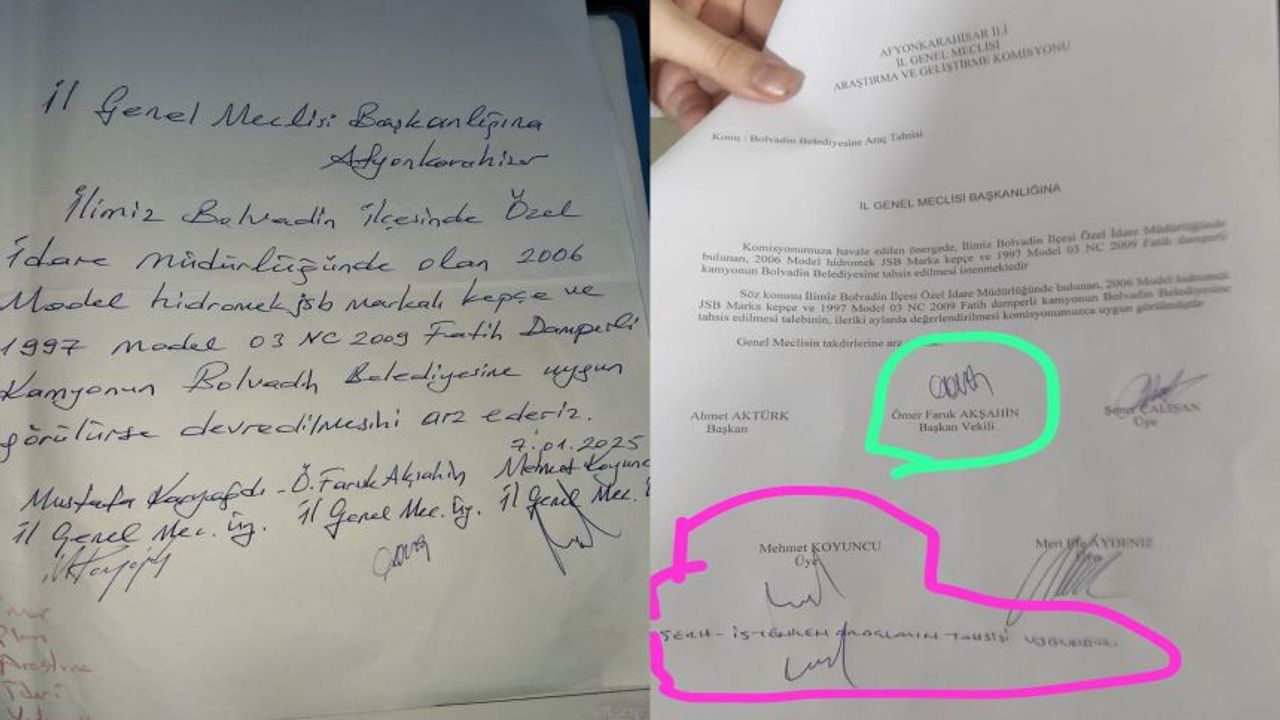 İl Genel Meclisi Başkanlığına
Afyonkarahisar
İlimiz Bolvadin ilçesinde Özel
İdare müdürlüğünde olan 2006
Model hidromek jsb markalı kepçe ve
1997 Model 03 NC 2009 Fatih Damperli
Kamyonun Bolvadin Belediyesine uygun
görülürse devredilmesini arz ederiz.
7.01.2025
Mustafa - Ö. Faruk Akşahin Mehmet Koyunc
İl Genel Mec. Üy. İl Genel Mec. Üy. İl Genel Mec. Ü
Araştırma
AFYONKARAHİSAR İLİ
İL GENEL MECLİSİ
ARAŞTIRMA VE GELİŞTİRME KOMİSYONU
Konu : Bolvadin Belediyesine Araç Tahsisi
İL GENEL MECLİSİ BAŞKANLIĞINA
Komisyonumuza havale edilen önergede, İlimiz Bolvadin İlçesi Özel İdare Müdürlüğünde
bulunan, 2006 Model hidromek JSB Marka kepçe ve 1997 Model 03 NC 2009 Fatih damperli
kamyonun Bolvadin Belediyesine tahsis edilmesi istenmektedir
Söz konusu İlimiz Bolvadin İlçesi Özel İdare Müdürlüğünde bulunan, 2006 Model hidromek
JSB Marka kepçe ve 1997 Model 03 NC 2009 Fatih damperli kamyonun Bolvadin Belediyesine
tahsis edilmesi talebinin, ileriki aylarda değerlendirilmesi komisyonumuzca uygun görülmüştür
Genel Meclisin takdirlerine arz
Ahmet AKTÜRK
Başkan
Ömer Faruk AKŞAHİN
Başkan Vekili
Şener ÇALIŞAN
Üye
Mehmet KOYUNCU
Üye
Mert Efe AYDENİZ
ŞERH - İSTENİLEN ARAÇLARIN TAHSİSİ UYGUNDUR.